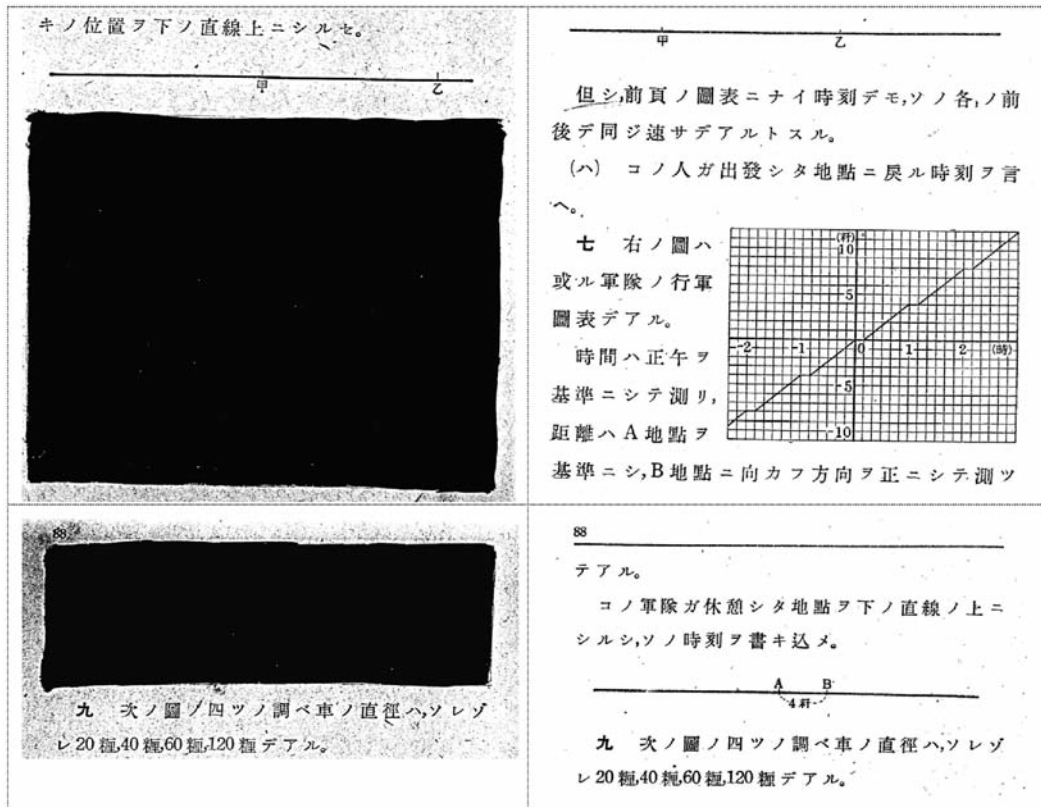 キノ位置ヲ下ノ直線上ニシルセ。
甲 乙
甲 乙
但シ,前頁ノ圖表ニナイ時刻デモ,ソノ各〻ノ前
後デ同ジ速サデアルトスル。
(ハ) コノ人ガ出發シタ地點ニ戻ル時刻ヲ言
ヘ。
七 右ノ圖ハ
或ル軍隊ノ行軍
圖表デアル。
時間ハ正午ヲ
基準ニシテ測リ,
距離ハA地點ヲ
基準ニシ,B地點ニ向カフ方向ヲ正ニシテ測ツ
(粁)
10
5
-2 -1 0 1 2 (時)
-5
-10
88
九 次ノ圖ノ四ツノ調ベ車ノ直徑ハ,ソレゾ
レ20糎,40糎,60糎,120糎デアル。
88
テアル。
コノ軍隊ガ休憩シタ地點ヲ下ノ直線ノ上ニ
シルシ,ソノ時刻ヲ書キ込メ。
A B
4粁
九 次ノ圖ノ四ツノ調ベ車ノ直徑ハ,ソレゾ
レ20糎,40糎,60糎,120糎デアル。